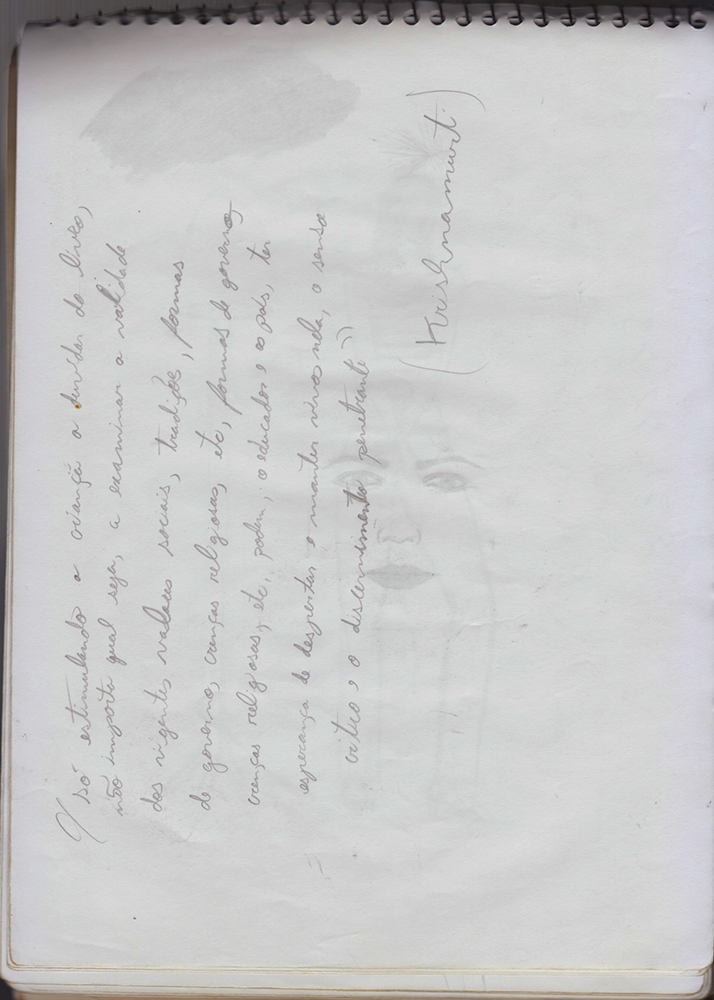 "só estimulando a criança a duvidar do livro,
não importa qual seja, a examinar a validade
dos vigentes valores sociais, tradições, formas
de governo, crenças religiosas, etc, formas de governo,
crenças religiosas, etc, podem, o educador e os pais, ter
esperança de despertar e manter viva nela, o senso
crítico e o discernimento penetrante"
(Krishnamurti)